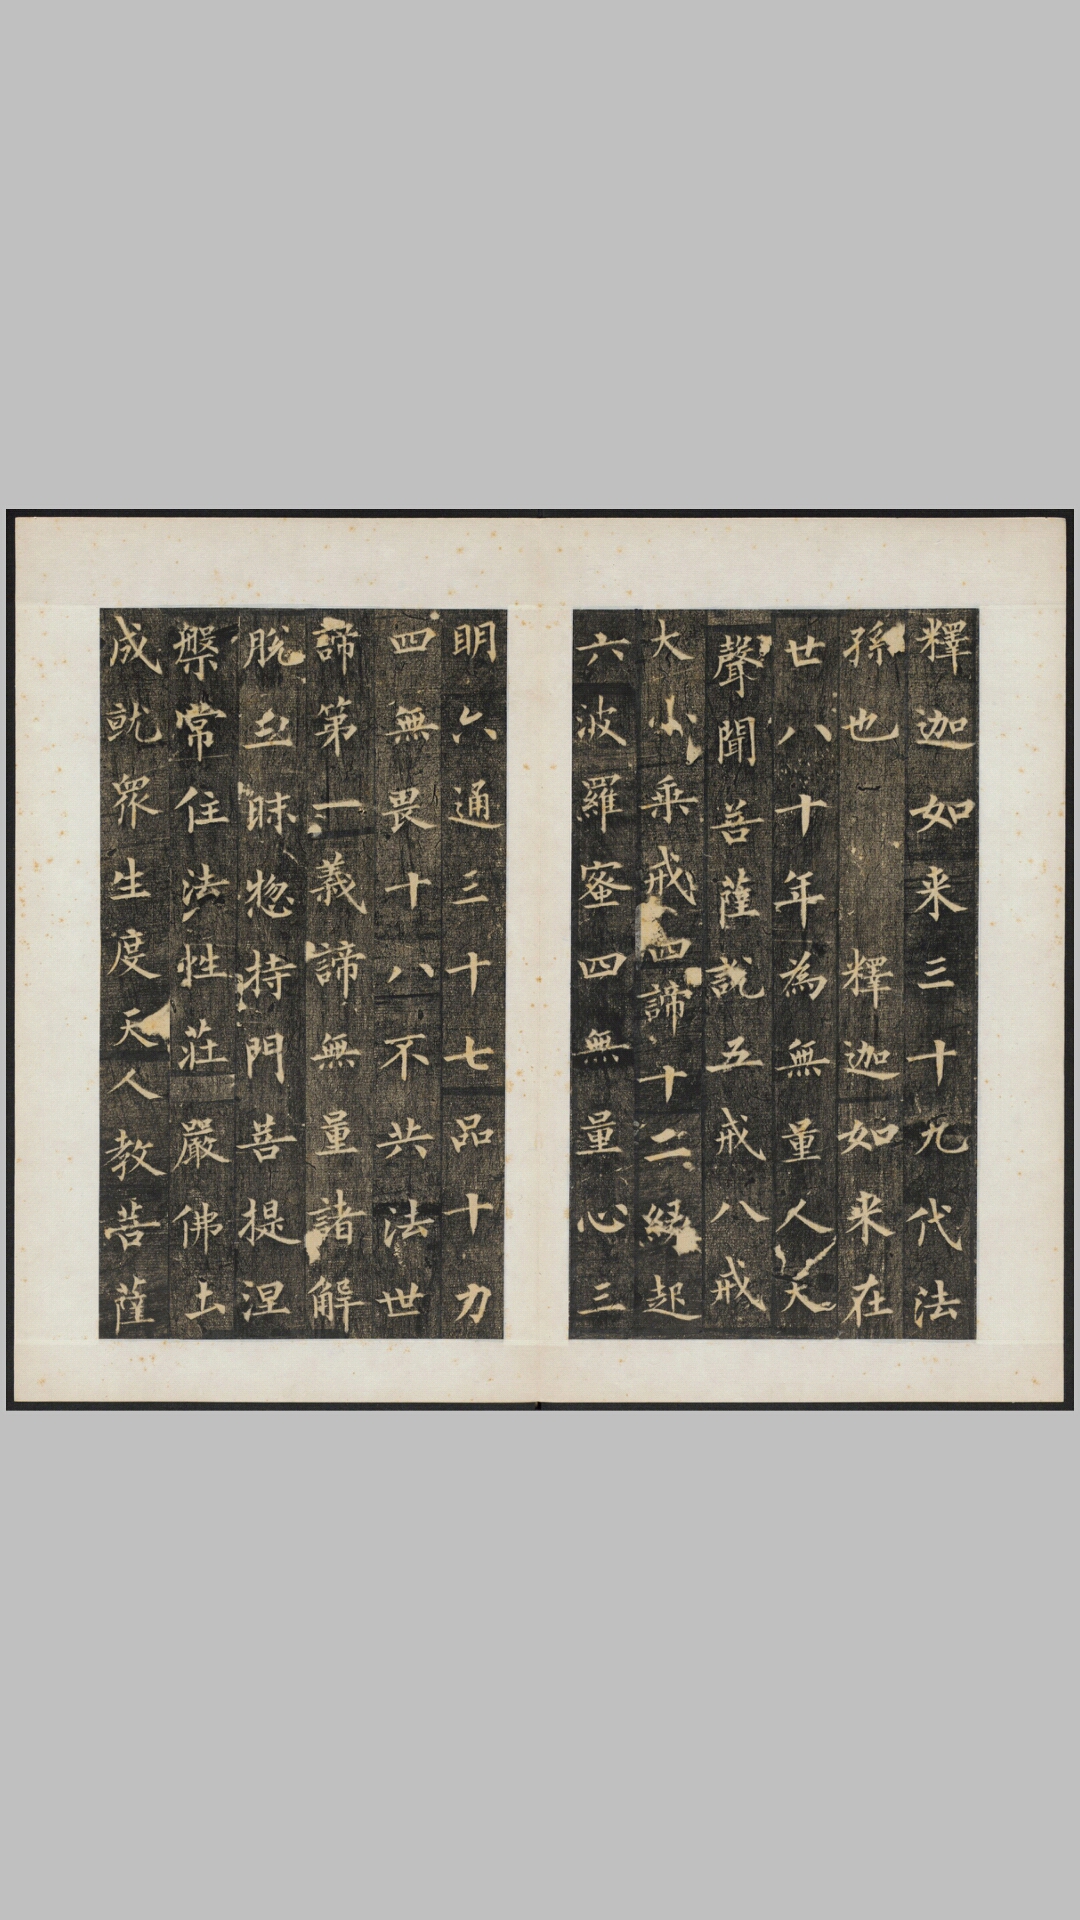 釋迦如来三十九代法
孫也釋迦如来在
廿八十年為無量人天
聲聞菩薩說五戒八戒
大小乘戒四諦十二緣起
六波羅蜜四無量心三
明六通三十七品十力
四無畏十八不共法世
諦第一義諦無量諸解
脱三昧惣持門菩提涅
槃常住法性莊嚴佛土
成就眾生度天人教菩薩